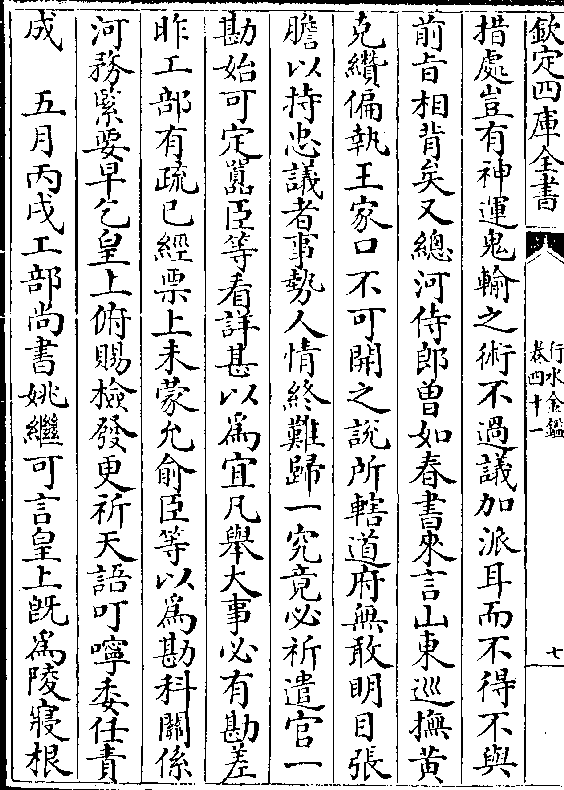 欽定四庫全書
行水金鑑
卷四十一
七
措處豈有神運鬼輸之術不過議加派耳而不得不與
前㫖相背矣又總河侍郎曾如春書來言山東巡撫黄
克纘偏執王家口不可開之說所轄道府無敢明目張
膽以持忠議者事勢人情終難歸一究竟必祈遣官一
勘始可定㠯臣等看詳甚以為宜凡舉大事必有勘差
昨工部有疏已經票上未蒙允俞臣等以為勘科關係
河務𦂳要早乞皇上俯賜檢發更祈天語叮嚀委任責
成　五月丙戌工部尚書姚繼可言皇上旣為陵寢根